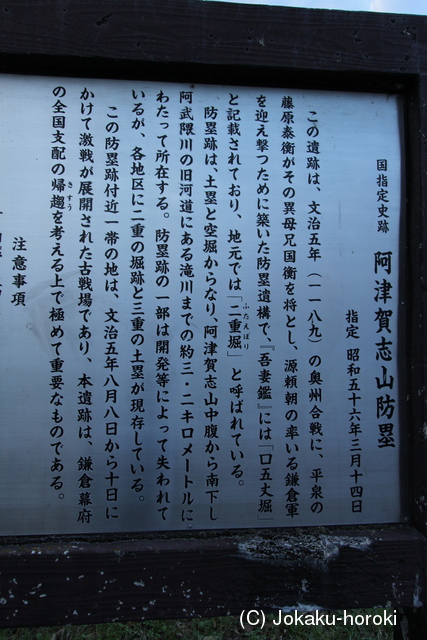 国指定史跡 阿津賀志山防塁
指定 昭和五十六年三月十四日
この遺跡は、文治五年（一一八九）の奥州合戦に、平泉の
藤原泰衡がその異母兄国衡を将とし、源頼朝の率いる鎌倉軍
を迎え撃つために築いた防塁遺構で、『吾妻鏡』には「口五丈堀」
と記載されており、地元では「二重堀」と呼ばれている。
ふたえぼり
防塁跡は、土塁と空堀からなり、阿津賀志山中腹から南下し
阿武隈川の旧河道にある滝川までの約三・二キロメートルに
わたって所在する。防塁跡の一部は開発等によって失われて
いるが、各地区に二重の堀跡と三重の土塁が現存している。
この防塁跡付近一帯の地は、文治五年八月八日から十日に
かけて激戦が展開された古戦場であり、本遺跡は、鎌倉幕府
の全国支配の帰趨を考える上で極めて重要なものである。
きすう
注意事項
(C) Jokaku-horoki